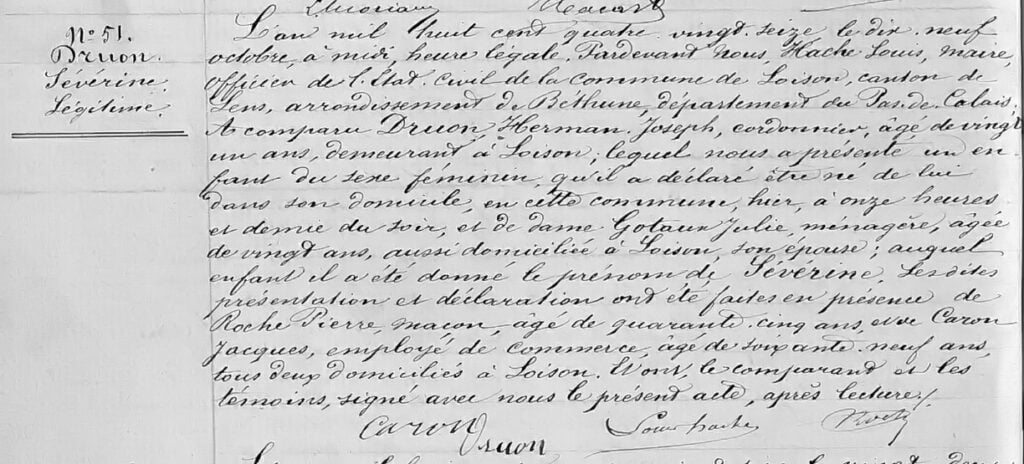 Nº 51.
Druon.
Séverine.
Légitime.
L'an mil huit cent quatre vingt seize le dix neuf
octobre, à midi, heure légale, Pardevant nous, Hache Louis, maire,
Officier de l'Etat civil de la commune de Loison, canton de
Lens, arrondissement de Béthune, département du Pas-de-Calais.
A comparu Druon, Herman Joseph, cordonnier, âgé de vingt
un ans, demeurant à Loison; lequel nous a présenté un en-
fant du sexe féminin, qu'il a déclaré être né de lui
dans son domicile, en cette commune, hier, à onze heures
et demie du soir, et de dame Gotaux Julie, ménagère, âgée
de vingt ans, aussi domiciliée à Loison, son épouse; auquel
enfant il a été donné le prénom de Séverine. Lesdites
présentation et déclaration ont été faites en présence de
Roche Pierre, maçon, âgé de quarante-cinq ans, et de Caron
Jacques, employé de commerce, âgé de soixante-neuf ans,
tous deux domiciliés à Loison. Et ont, le comparant et les
témoins, signé avec nous le présent acte, après lecture.
Caron
Druon
Louis Hache